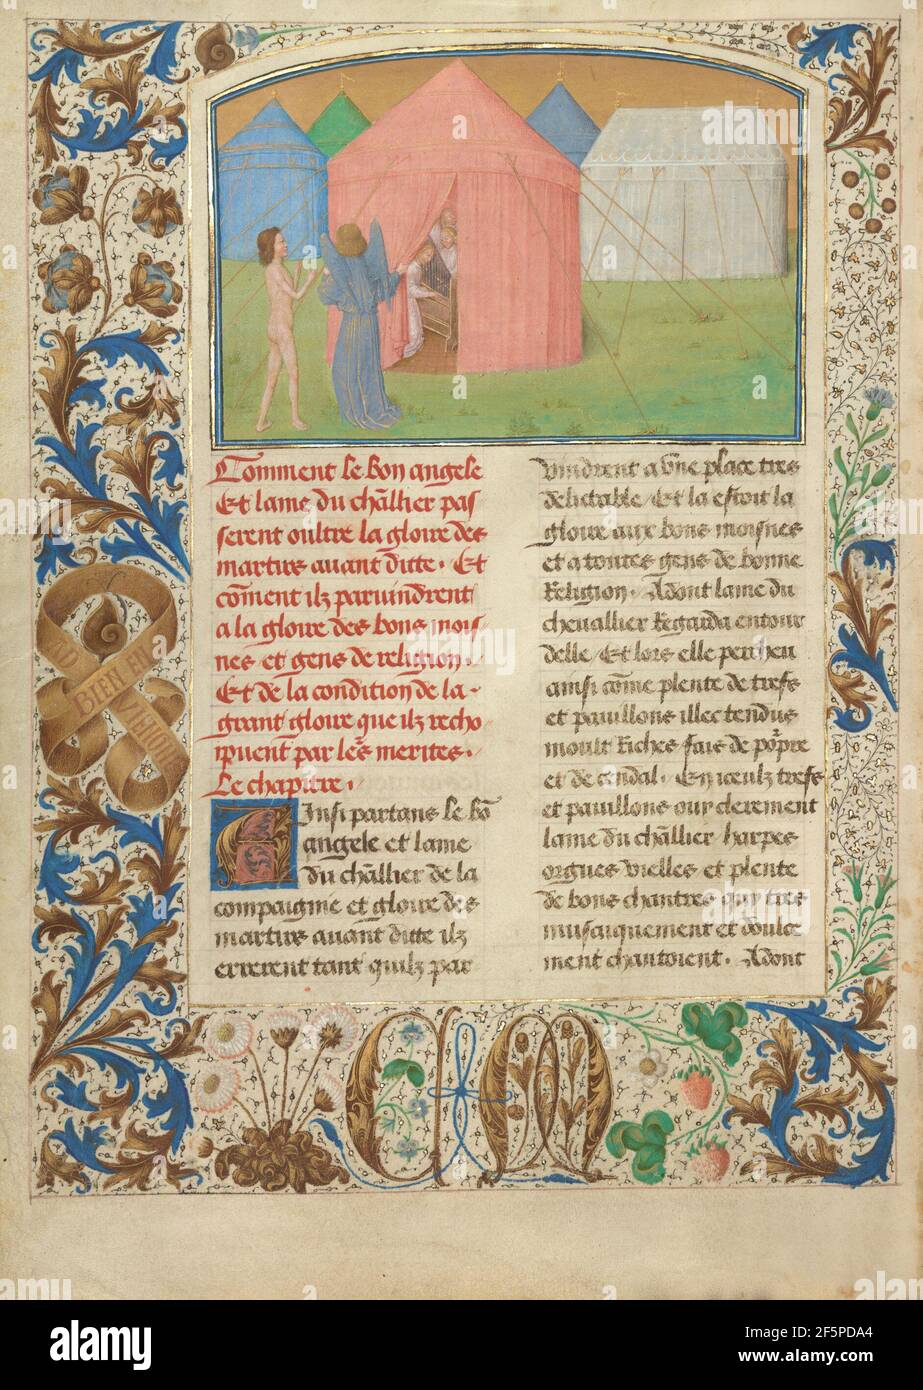 Comment le bon angele
Et lame du chãllier pas
serent oultre la gloire des
martirs auant ditte. Et
cõment ilz paruindrent
a la gloire des bons mois
nes et gens de religion.
Et de la condition de la
grant gloire que ilz recho
ipuent par les merites.
Le chapitre.
Ainsi partans le bõ
angele et lame
du chãllier de la
compaignie et gloire des
martirs auant ditte ilz
errerent tant quilz par
uindrent a vne place tres
delictable / Et la estoit la
gloire aux bons moisnes
et a toutes gens de bonne
Religion. Adont lame du
cheuallier Regarda entour
delle / Et lors elle percheu
ainsi cõme plente de trefs
et pauillons illec tendus
moult Riches fais de po͛pre
et de cendal. En iceulz trefs
et pauillons our clerement
lame du chãllier / harpes
orgues vielles et plente
de bons chantres qui tres
musicquement et doulce
ment chantoient. Adont
BIEN EN
CM
alamy
Image ID: 2F5PDA4
www.alamy.com